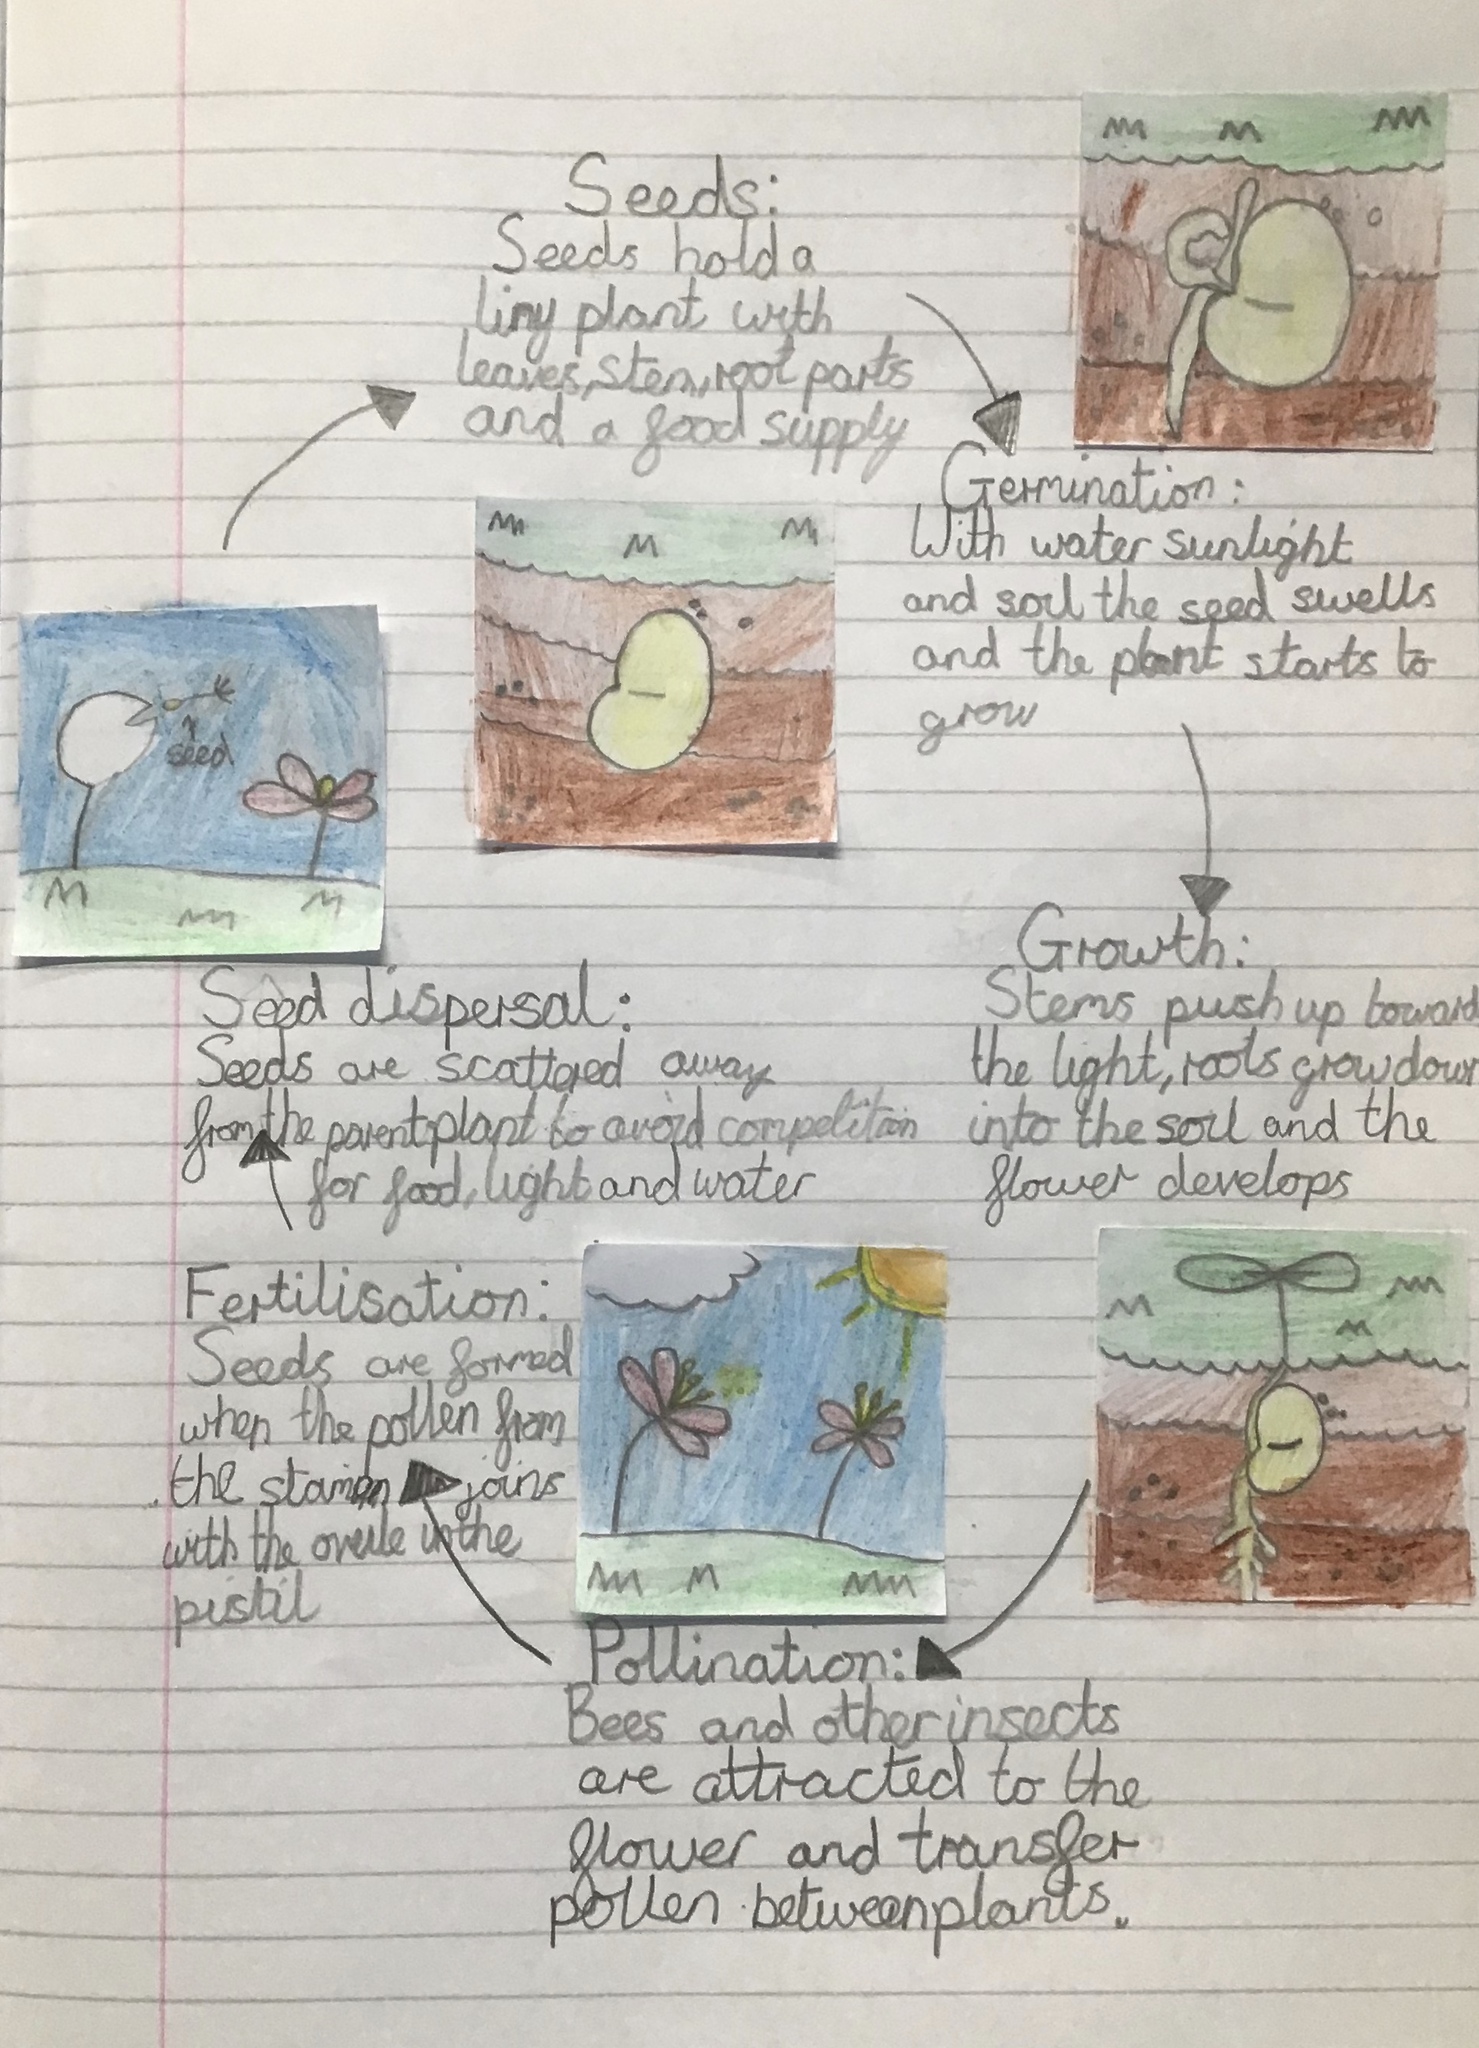 Seeds:
Seeds hold a
tiny plant with
leaves, stem, root parts
and a food supply
Germination:
With water sunlight
and soil the seed swells
and the plant starts to
grow
seed
Growth:
Stems push up toward
the light, roots grow down
into the soil and the
flower develops
Seed dispersal:
Seeds are scattered away
from the parent plant to avoid competition
for food, light and water
Fertilisation:
Seeds are formed
when the pollen from
the stamen joins
with the ovule in the
pistil
Pollination:
Bees and other insects
are attracted to the
flower and transfer
pollen between plants.